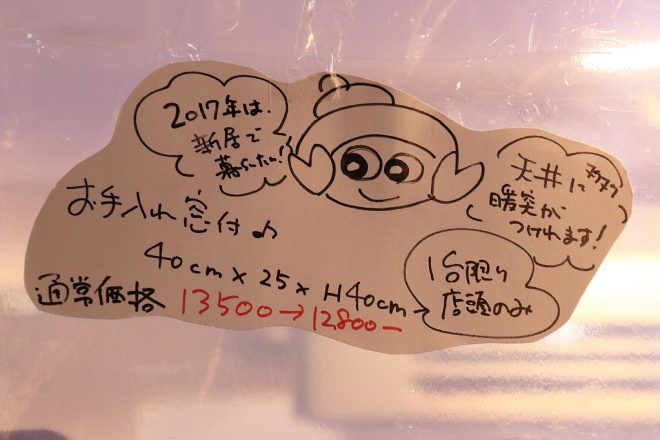 2017年は、
新居で
暮らしたい!
天井に
暖突が
つけれます!
お手入れ窓付♪
40cm×25×H40cm
通常価格 13500→12800ー
1台限り
店頭のみ